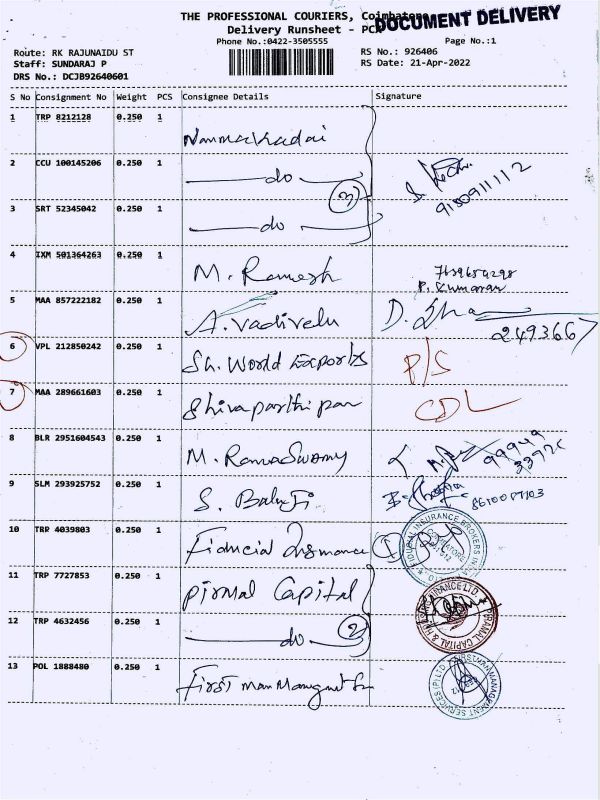 THE PROFESSIONAL COURIERS, Coimbatore
DOCUMENT DELIVERY
Delivery Runsheet - PCX
Phone No.:0422-3505555
Page No.:1
Route: RK RAJUNAIDU ST
RS No.: 926406
Staff: SUNDARAJ P
RS Date: 21-Apr-2022
DRS No.: DCJB92640601
S No Consignment No Weight PCS Consignee Details Signature
1 TRP 8212128 0.250 1 Nammakadai
2 CCU 100145206 0.250 1 do 9150911112
3 SRT 52345042 0.250 1 do
3
4 IXM 501364263 0.250 1 M. Ramesh 7639654298
P. Kumaran
5 MAA 857222182 0.250 1 A. Vadivelu 2493667
6 VPL 212850242 0.250 1 Sh. World Exports P/S
7 MAA 289661603 0.250 1 Shivaparthipan CDL
8 BLR 2951604543 0.250 1 M. RamaSwamy
9 SLM 293925752 0.250 1 S. Balaji
10 TRP 4039803 0.250 1 Fiducial Insurance 1
FIDUCIAL INSURANCE BROKERS
11 TRP 7727853 0.250 1 Pirmal Capital
12 TRP 4632456 0.250 1 do 2
PIRAMAL CAPITAL &
13 POL 1888480 0.250 1 First Man Managmet